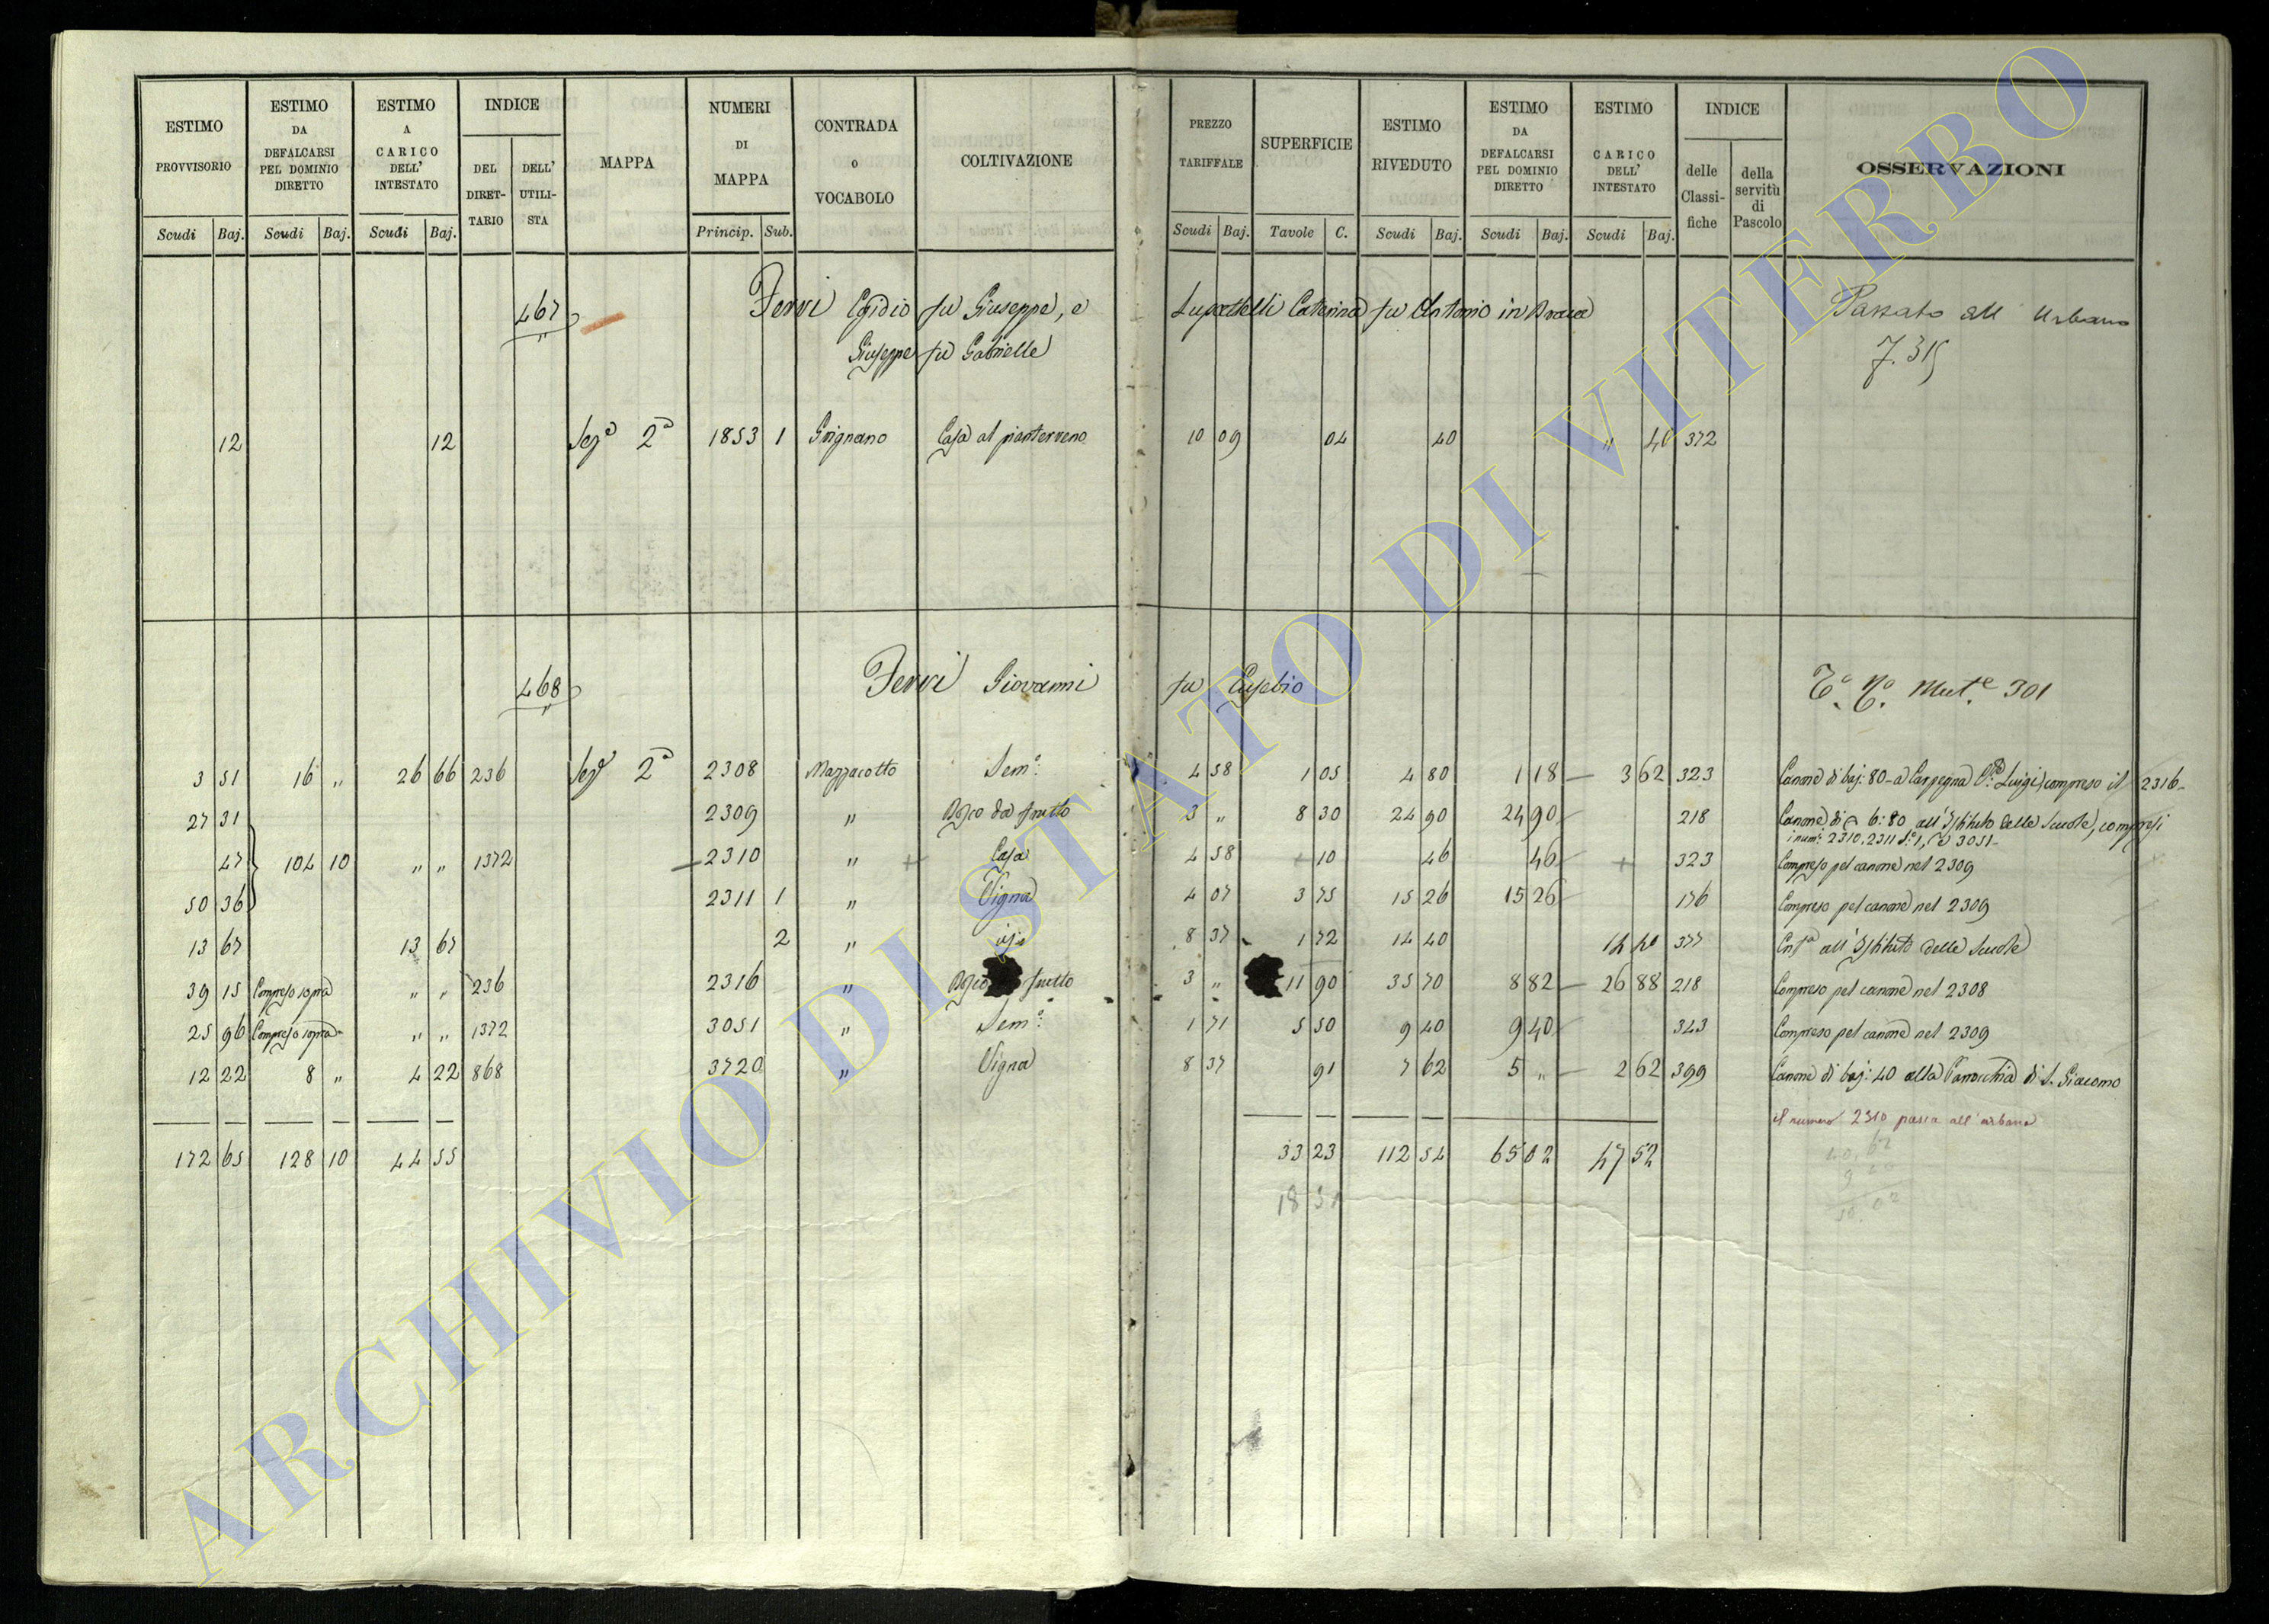 ESTIMO PROVVISORIO Scudi Baj.
ESTIMO DA DEFALCARSI PEL DOMINIO DIRETTO Scudi Baj.
ESTIMO A CARICO DELL' INTESTATO Scudi Baj.
INDICE DEL DIRET-TARIO DELL' UTILI-STA
MAPPA
NUMERI DI MAPPA Princip. Sub.
CONTRADA o VOCABOLO
COLTIVAZIONE
PREZZO TARIFFALE Scudi Baj.
SUPERFICIE Tavole C.
ESTIMO RIVEDUTO Scudi Baj.
ESTIMO DA DEFALCARSI PEL DOMINIO DIRETTO Scudi Baj.
ESTIMO A CARICO DELL' INTESTATO Scudi Baj.
INDICE delle Classi-fiche della servitù di Pascolo
OSSERVAZIONI
467 Ferri Egidio fu Giuseppe, e Lupattelli Caterina fu Antonio in Passato all Urbano
Giuseppe fu Gabrielle 7.315
12 12 Sezе 2a 1853 1 Grignano Casa al pianterreno 10 09 04 40 " 40 372
468 Ferri Giovanni fu Eusebio Mut.e 301
3 51 16 " 26 66 236 Seze 2a 2308 Mazzacotto Sem.o 4 58 1 05 4 80 1 18 3 62 323 Canone di baj: 80 a Carpegna Luigi, compreso il 2316
27 31 2309 " Bosco da frutto 3 " 8 30 24 90 24 90 218 Canone di 6:80 all'Istituto delle Scuole, compresi
i num: 2310, 2311 s.1, e 3051
47 104 10 " " 1372 2310 " Casa 4 58 10 46 46 323 Compreso pel canone nel 2309
50 36 2311 1 " Vigna 4 07 3 75 15 26 15 26 176 Compreso pel canone nel 2309
13 67 13 67 2 " 8 37 1 72 14 40 14 40 377 all'Istituto delle Scuole
39 15 Compreso sopra " " 236 2316 " Bosco frutto 3 " 11 90 35 70 8 82 26 88 218 Compreso pel canone nel 2308
25 96 Compreso sopra " " 1372 3051 " Sem.o 1 71 5 50 9 40 9 40 343 Compreso pel canone nel 2309
12 22 8 " 4 22 868 3720 " Vigna 8 37 91 7 62 5 " 2 62 399 Canone di baj: 40 alla Parrocchia di S. Giacomo
il numero 2310 passa all'urbano
172 65 128 10 44 55 33 23 112 54 65 02 47 52
ARCHIVIO DI STATO DI VITERBO